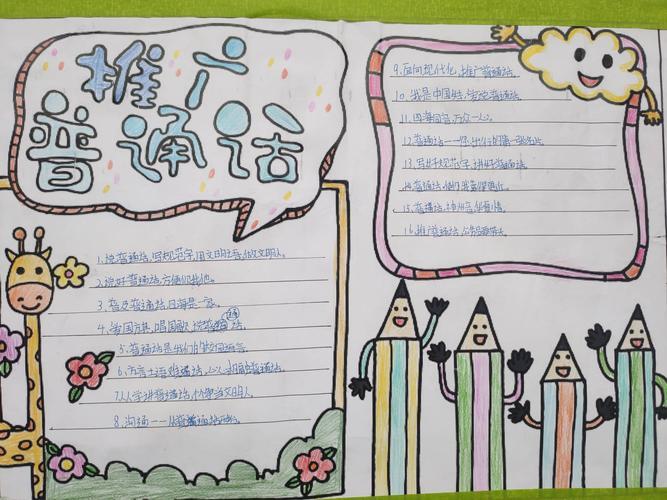 推广
普通话
1、说普通话,写规范字,用文明语,做文明人。
2、说好普通话,方便你我他。
3、普及普通话,四海是一家。
4、爱国旗,唱国歌,说普通话。
5、普通话是我们的校园语言。
6、方言土语难通话,心心相印普通话。
7、人人学讲普通话,个个争当文明人。
8、沟通——从普通话开始。
9、面向现代化,推广普通话。
10、我是中国娃,爱说普通话。
11、四海同音,万众一心。
12、普通话——你
13、写好规范字,讲好普通话。
14、普通话,使你我靠得更近。
15、普通话,神州音,华夏情。
16、推广普通话,